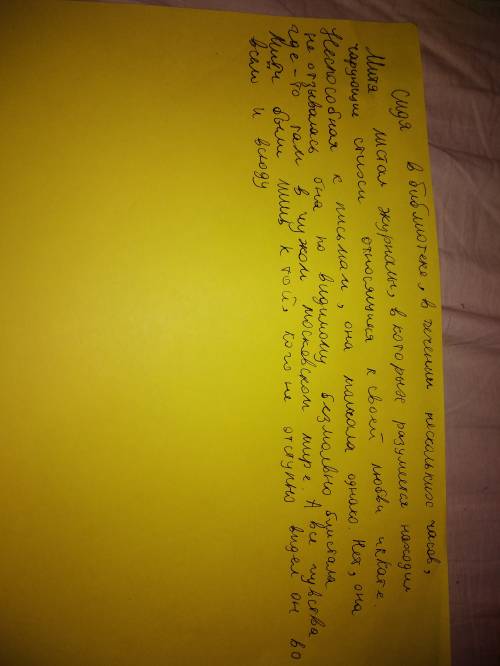 Сидя в библиотеке, в течении нескольких часов,
Митя листал журналы, в которых разумеется находил
чарующие стихи относящиеся к своей любви и к Кате.
Неспособная к письмам, она молчала однако. Нет, она
не отзывалась она по видимому безмолвно блистала
где-то там в чужом московском мире. А все чувства
Мити были лишь к той, кого не отступно видел он во
всём и всюду